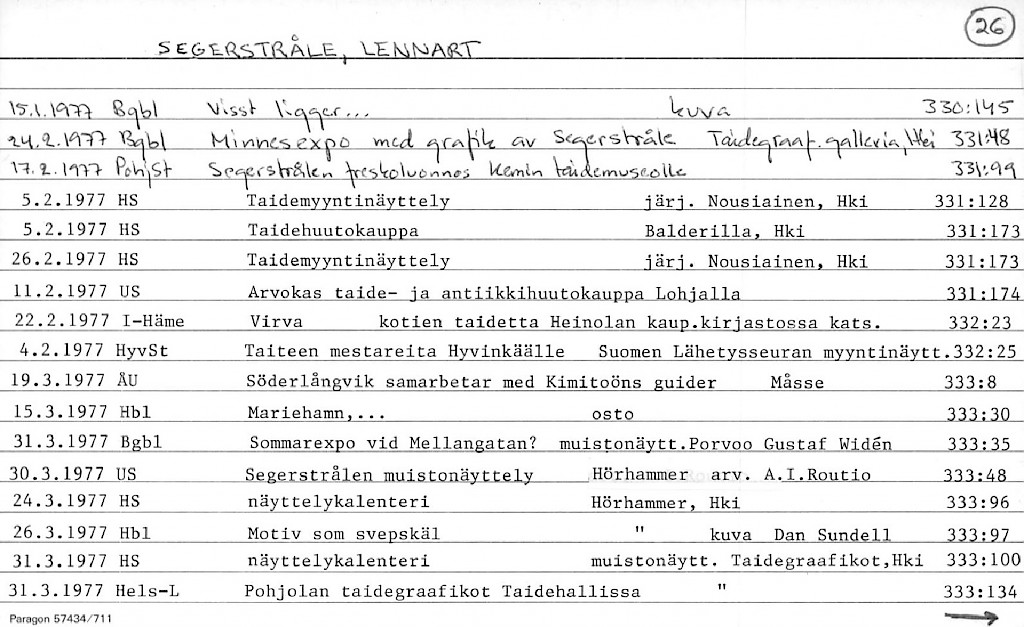 26
SEGERSTRÅLE, LENNART
15.1.1977 Bgbl Visst ligger... kuva 330:145
24.2.1977 Bgbl Minnesexpo med grafik av Segerstråle Taidegraaf.galleria,Hki 331:48
17.2.1977 PohjSt Segerstrålen freskoluonnos Kemin taidemuseolle 331:99
5.2.1977 HS Taidemyyntinäyttely järj. Nousiainen, Hki 331:128
5.2.1977 HS Taidehuutokauppa Balderilla, Hki 331:173
26.2.1977 HS Taidemyyntinäyttely järj. Nousiainen, Hki 331:173
11.2.1977 US Arvokas taide- ja antiikkihuutokauppa Lohjalla 331:174
22.2.1977 I-Häme Virva kotien taidetta Heinolan kaup.kirjastossa kats. 332:23
4.2.1977 HyvSt Taiteen mestareita Hyvinkäälle Suomen Lähetysseuran myyntinäytt.332:25
19.3.1977 ÅU Söderlångvik samarbetar med Kimitoöns guider Måsse 333:8
15.3.1977 Hbl Mariehamn,... osto 333:30
31.3.1977 Bgbl Sommarexpo vid Mellangatan? muistonäytt.Porvoo Gustaf Widén 333:35
30.3.1977 US Segerstrålen muistonäyttely Hörhammer arv. A.I.Routio 333:48
24.3.1977 HS näyttelykalenteri Hörhammer, Hki 333:96
26.3.1977 Hbl Motiv som svepskäl " kuva Dan Sundell 333:97
31.3.1977 HS näyttelykalenteri muistonäytt. Taidegraafikot,Hki 333:100
31.3.1977 Hels-L Pohjolan taidegraafikot Taidehallissa " 333:134
Paragon 57434/711